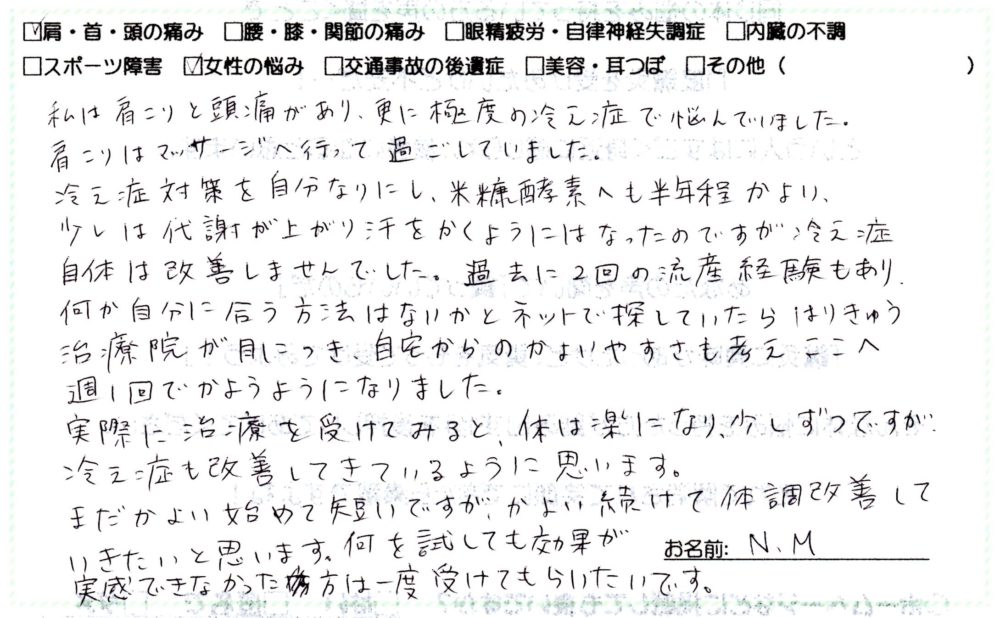 ☑肩・首・頭の痛み ☐腰・膝・関節の痛み ☐眼精疲労・自律神経失調症 ☐内臓の不調
☐スポーツ障害 ☑女性の悩み ☐交通事故の後遺症 ☐美容・耳つぼ ☐その他（ ）
私は肩こりと頭痛があり、更に極度の冷え症で悩んでいました。
肩こりはマッサージへ行って過ごしていました。
冷え症対策を自分なりにし、米糠酵素へも半年程かよい、
少しは代謝が上がり汗をかくようにはなったのですが冷え症
自体は改善しませんでした。過去に2回の流産経験もあり、
何か自分に合う方法はないかとネットで探していたらはりきゅう
治療院が目につき、自宅からのかよいやすさも考えここへ
週1回でかようようになりました。
実際に治療を受けてみると、体は楽になり、少しずつですが、
冷え症も改善してきているように思います。
まだかよい始めて短いですが、かよい続けて体調改善して
いきたいと思います。何を試しても効果が
実感できなかった方は一度受けてもらいたいです。
お名前: N.M